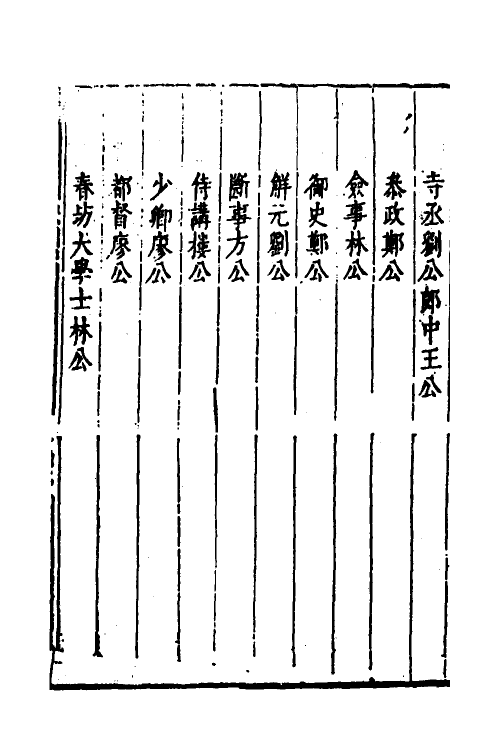 寺丞劉公郎中王公
叅政鄭公
僉事林公
御史鄭公
解元劉公
斷事方公
侍講樓公
少卿廖公
都督廖公
春坊大學士林公